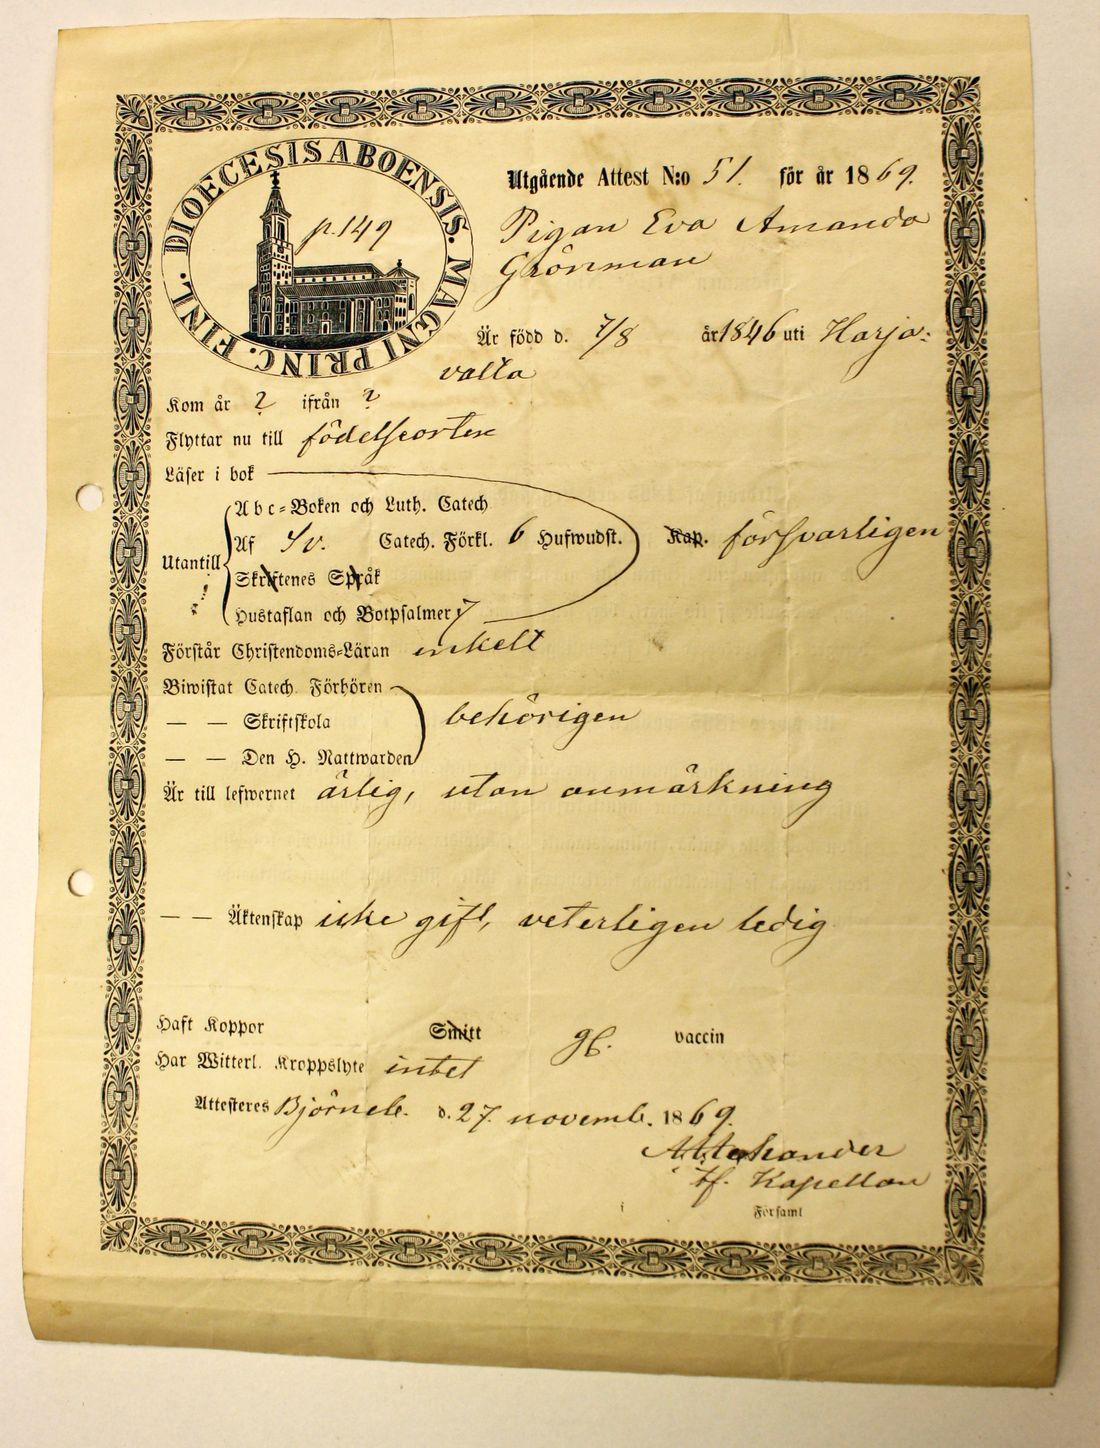 DIOECESIS ABOENSIS. MAGNI PRINC. FINL.
p. 149
Utgående Attest N:o 51. för år 1869.
Pigan Eva Amanda
Grönman
Är född d. 7/8 år 1846 uti Harja-
valta
Kom år ? ifrån ?
Flyttar nu till födelseorten
Läser i bok
Abc-Boken och Luth. Catech
Utantill Af Sv. Catech. Förkl. 6 Hufwudst. Kap. försvarligen
Skriftenes Språk
Hustaflan och Botpsalmer 7
Förstår Christendoms-Läran enkelt
Biwistat Catech. Förhören
— — Skriftskola behörigen
— — Den H. Nattwarden
Är till lefwernet ärlig, utan anmärkning
— — Äktenskap icke gift, veterligen ledig
Haft Koppor Smitt gf. vaccin
Har Witterl. Kroppslyte intet
Attesteres Björneb. d. 27 novemb. 1869.
tf. Kapellan
Församl